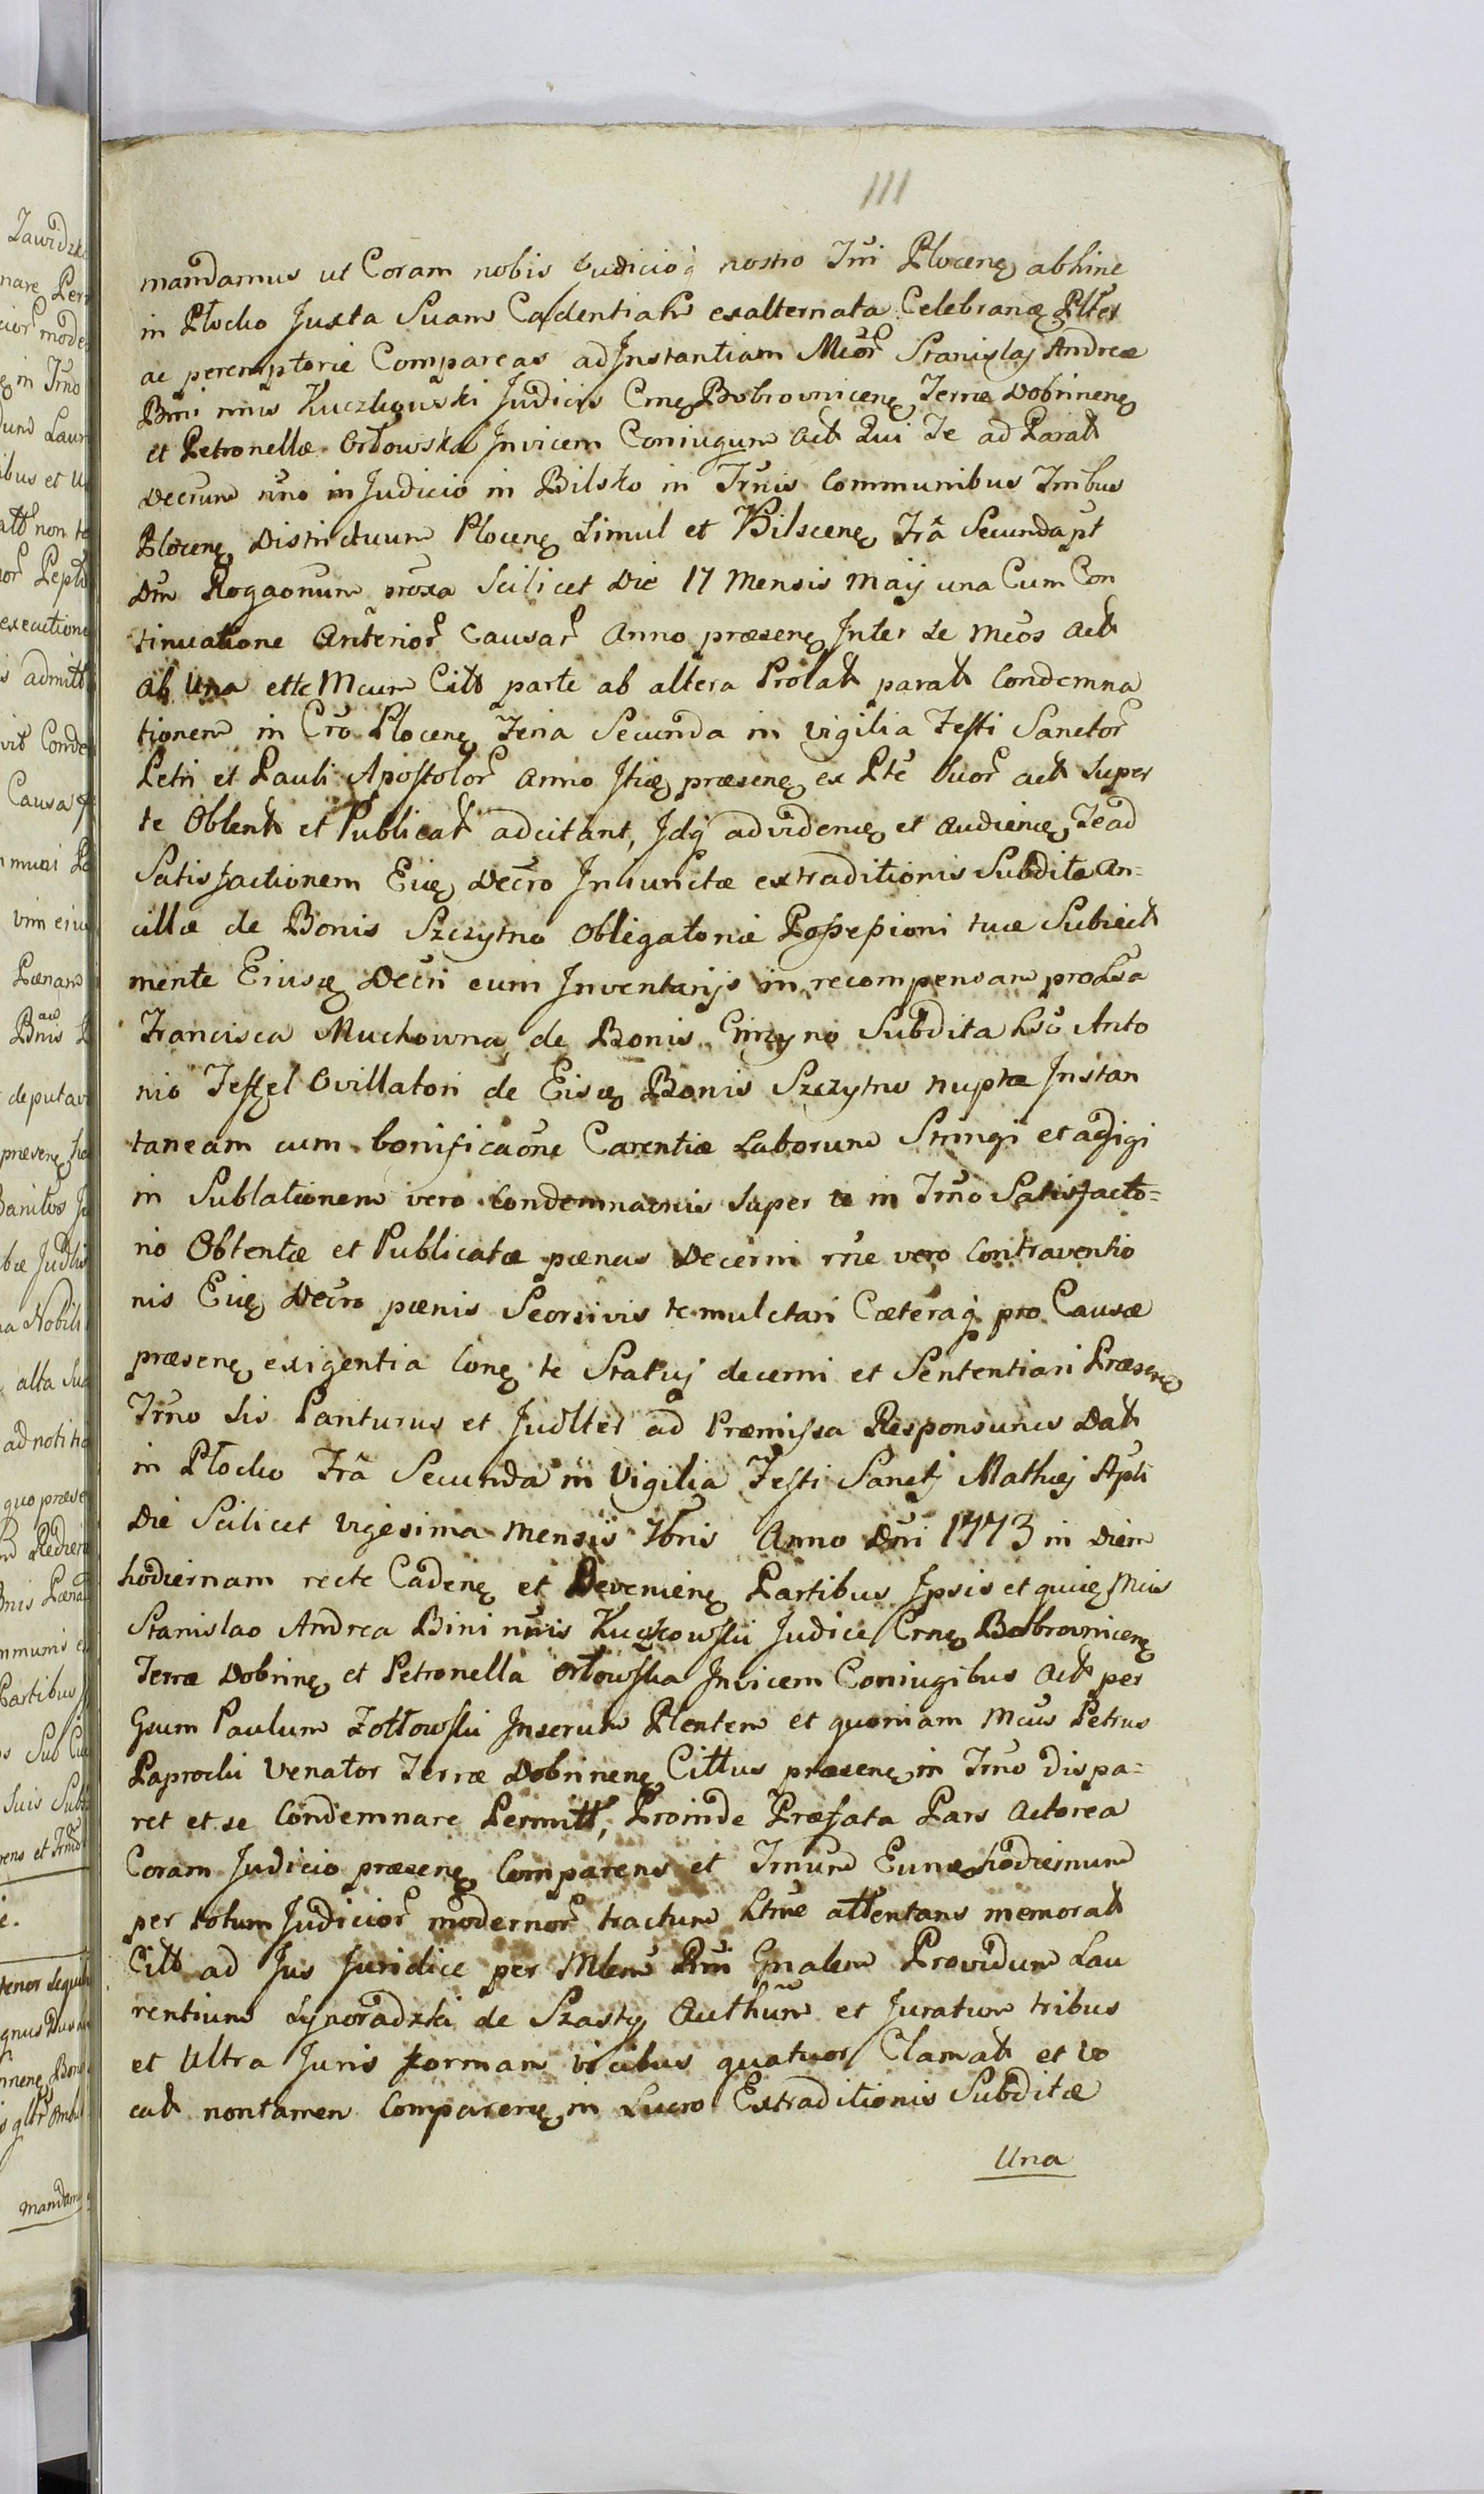 111
mandamus ut Coram nobis Judicioq́ nostro Trri Plocenę abhinc
in Płocko Juxta Suam Cadentiam exalternata Celebranę Pltẽr
ac peremptorie Compareas ad Instantiam Mcorꝝ Stanislaj Andreæ
Bini nnis Kuczkowski Judicis Crnę Bobrovnicenę Terræ Dobrinenę
et Petronellæ Orłowska Invicem Coniugum Act Qui Te ad Parat
Decrum in Judicio in Bilsko in Trnis Communibus Trribus
Plocenę Districtuum Plocenę Simul et Bilscenę Frã Secunda pt
Dm Rogaonum proxa Scilicet Die 17 Mensis Maij una Cum Con
tinuatione Anteriorꝝ Causarꝝ Anno præsenę Inter te Mcos Act
ab Una et te Mcum Citt parte ab altera Prolat parat Condemna
tionem in Cro Plocenę Feria Secunda in Vigilia Festi Sanctorꝝ
Petri et Pauli Apostolorꝝ Anno Itię præsenę ex Ptẽ Suorꝝ act Super
te Obtent et Publicat adcitant, Idq́ ad videnę et Audienę, Te ad
Satisfactionem Eiuę Decro Iniunctæ extraditionis Subditæ An=
cillæ de Bonis Szczytno Obligatoriæ Possessioni tuæ Subiect
mente Eiusę Decri cum Inventarijs in recompensam pro Lsa
Francisca Muchowna, de Bonis Subdita Lso Anto
nio Ovillatori de Eisę Bonis Szczytno nuptæ Instan
taneam cum bonificaone Carentiæ Laborum Stringi et adigi
in Sublationem vero Condemnaonis Super te in Trno Satisfacto=
rio Obtentæ et Publicatæ pænas Decerni rne vero Contraventio
nis Eiuę Decro pænis Seorsivis te mulctari Cæteraq́ pro Causæ
præsenę exigentia Conę te Statuj decerni et Sententiari Præsenę
Trno Sis Pariturus et Judltẽr ad Præmissa Responsurus Dat
in Płocko Frã Secunda in Vigilia Festi Sanctj Mathæj Apli
Die Scilicet Vigesima Mensis 7bris Anno Dni 1773 in Diem
hodiernam recte Cadenę et Devenienę Partibus Ipsis et quię Mcis
Stanislao Andrea Bini nnis Kuczkowski Judice Crnę Bobrovnicenę
Terræ Dobrinę et Petronella Orłowska Invicem Coniugibus Act per
Gsum Paulum Zołtowski Inserum Plentem et quoniam Mcus Petrus
Paprocki Venator Terræ Dobrinenę Cittus præsenę in Trno dispa=
ret et se Condemnare Permitt, Proinde Præfata Pars Actorea
Coram Judicio præsenę Comparens et Trnum Eunę hodiernum
per totum Judiciorꝝ modernorꝝ tractum Ltme attentans memorat
Citt ad Jus Juridice per Mlem Rni Gnalem Providum Lau
rentium Synoradzki de Szasty Authum et Juratum tribus
et Ultra Juris formam vicibus quatuor Clamat et Vo
cat non tamen Comparenę in Lucro Extraditionis Subditæ
Una